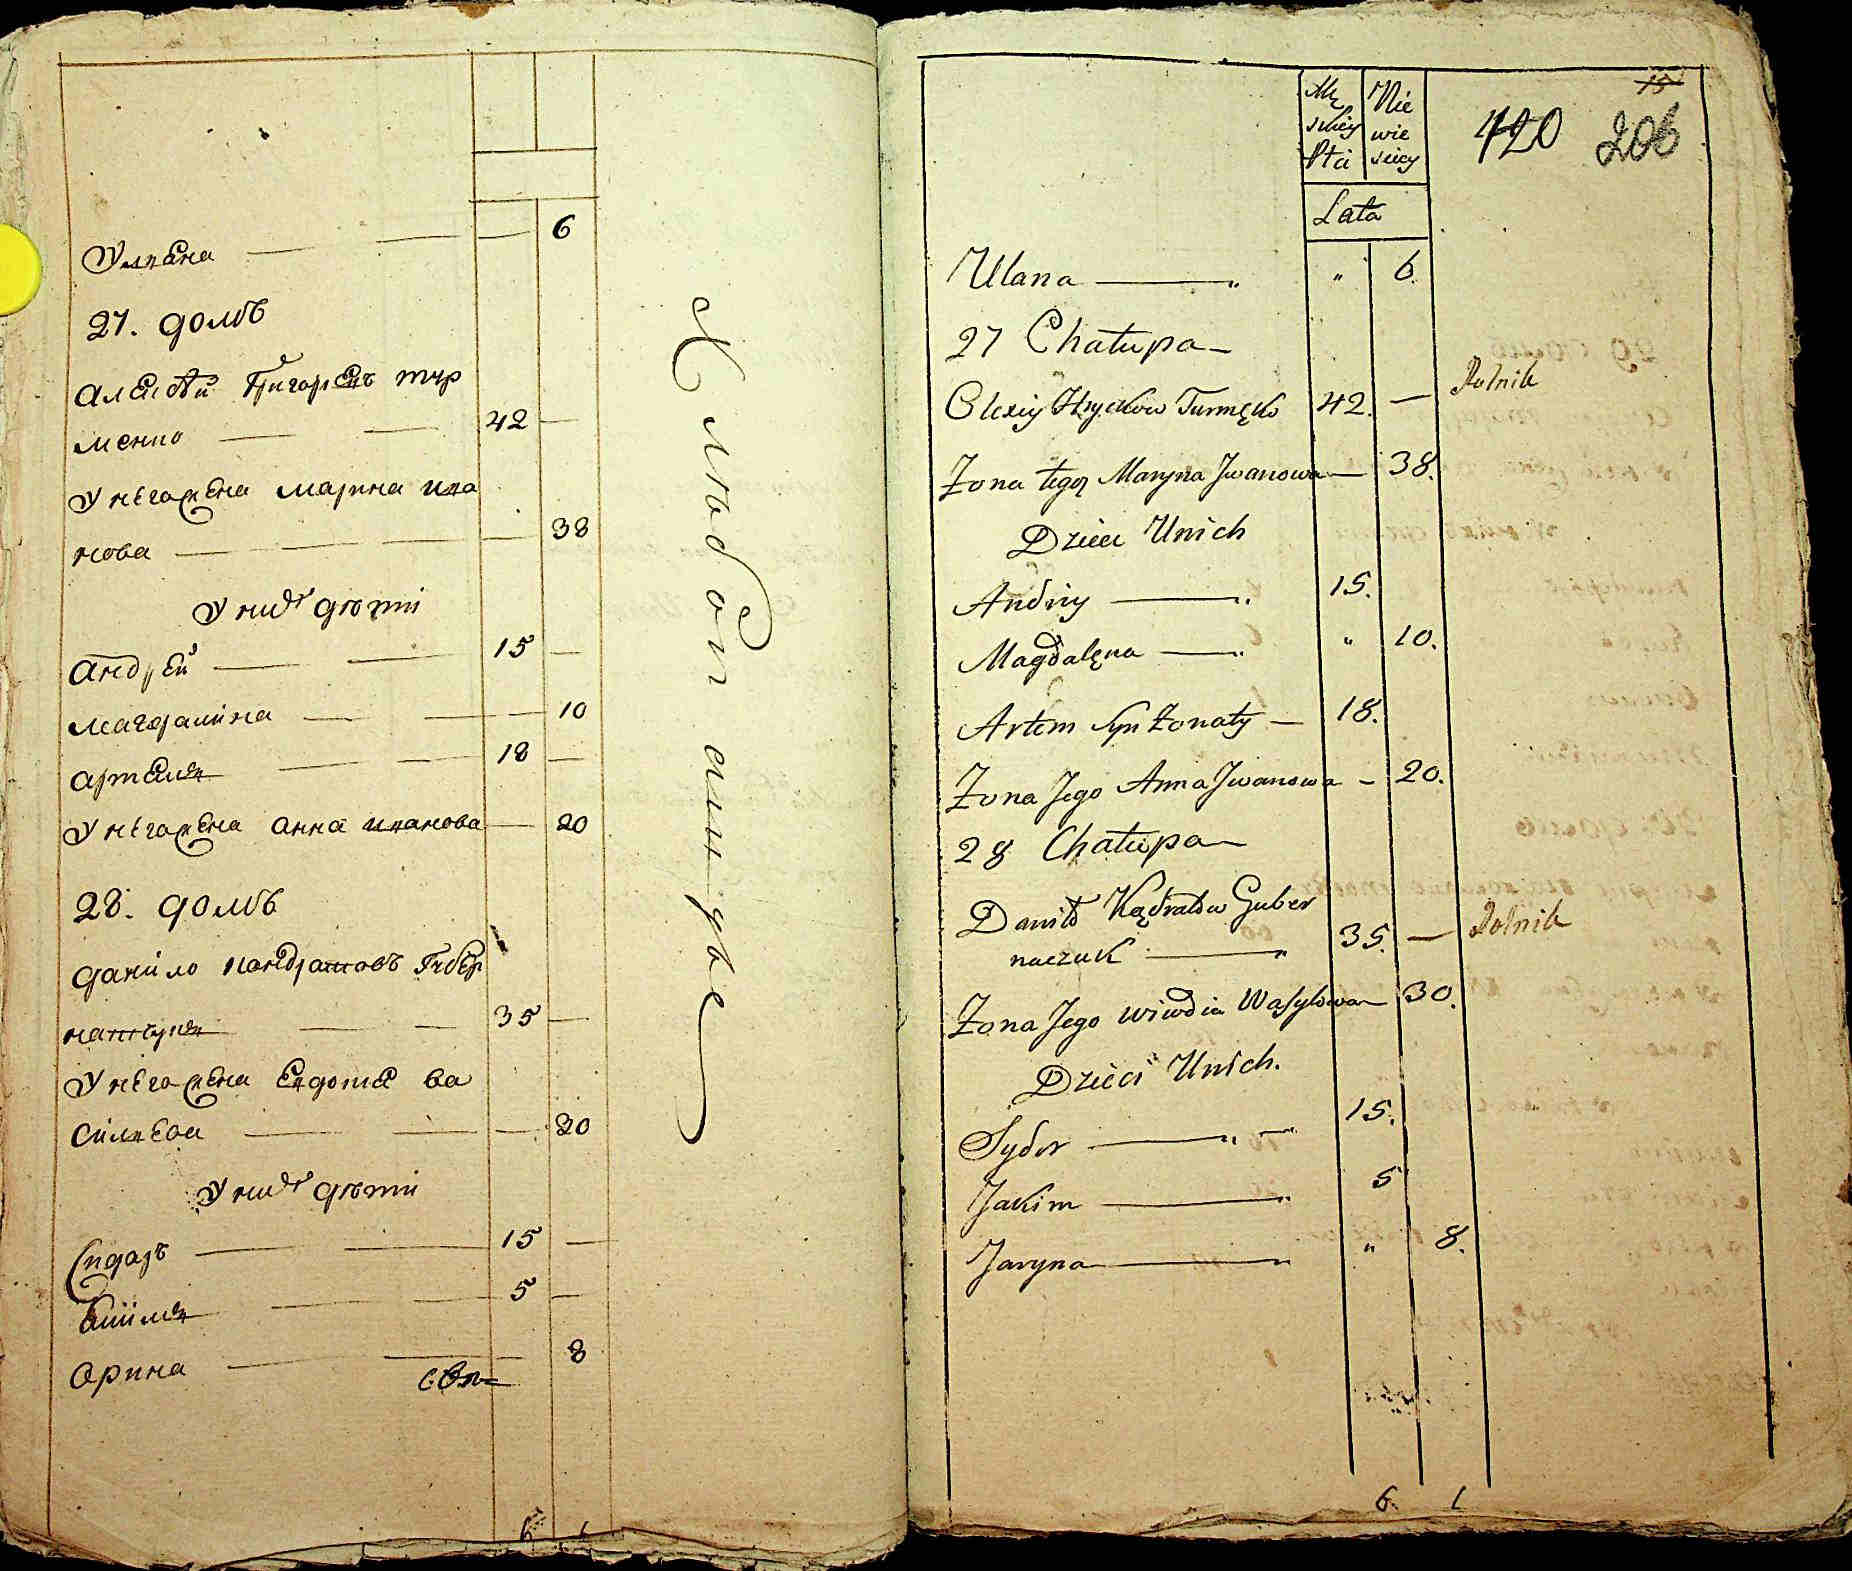 6
Ульяна
27. домъ
Алексѣй Григорьевъ тур
менко 42
У него жена Марина Ива
нова 38
У нихъ дѣти
Андрей 15
Магдалина 10
Артемъ 18
У него жена Анна Иванова 20
28. домъ
Данило Кондратовъ Губер
натчукъ 35
У него жена Евдокия Ва
сильева 30
У нихъ дѣти
Сидоръ 15
Акимъ 5
Орина 8
6
Mę
skiey
Płci
Nie
wie
sciey
15
420 206
Lata
Ulana " 6.
27 Chałupa
Olexiy Hryckow Turmęko 42. — Rolnik
Żona tegoż Maryna Jwanowa — 38.
Dzieci Unich
Andriy 15.
Magdalęna " 10.
Artem Syn Żonaty — 18.
Żona Jego Anna Jwanowa - 20.
28 Chałupa
Daniło Kądratow Guber
naczuk 35. — Rolnik
Żona Jego Wiwdia Wasylowa 30.
Dzieci Unich.
Sydor 15.
Jakim 5
Jaryna " 8.
6. 1